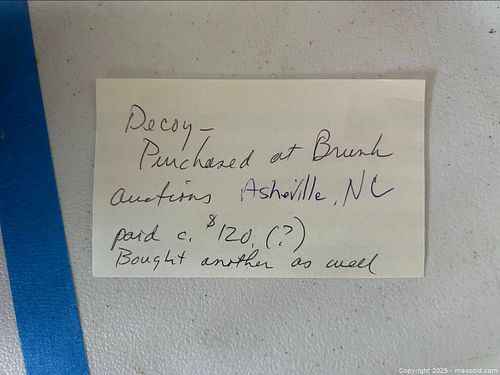 Decoy-
Purchased at Brunk
auctions Asheville, NC
paid c. $120. (?)
Bought another as well
Copyright 2025 - maxsold.com